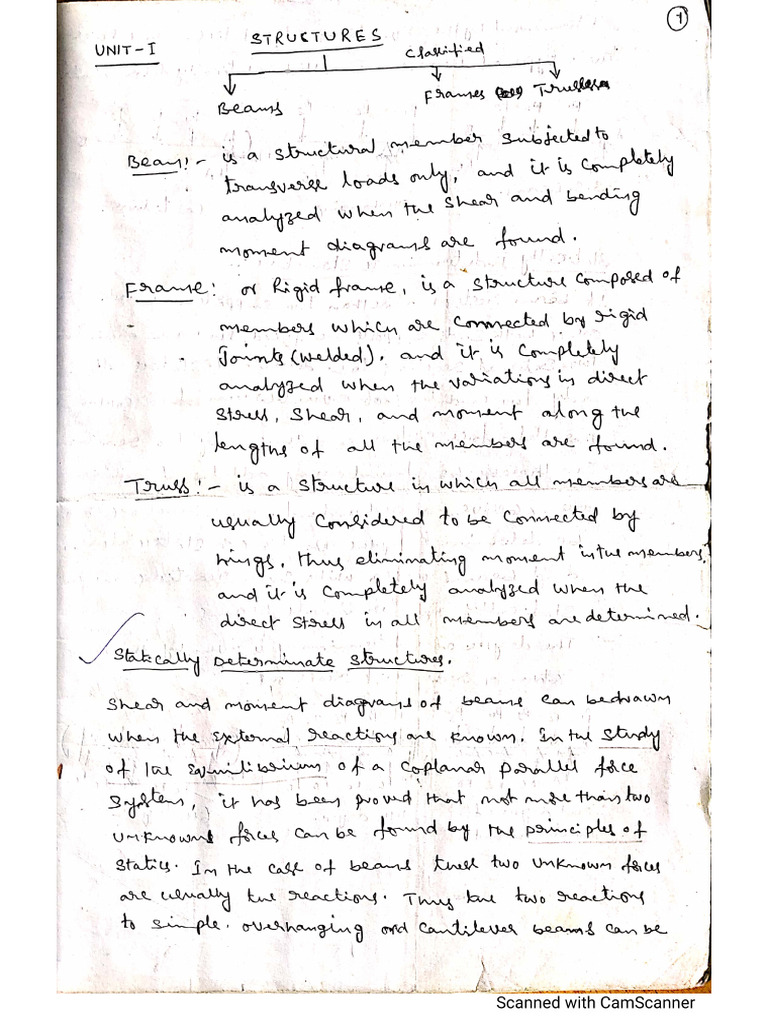 1
UNIT-I
STRUCTURES
Classified
Beams
Frames (or) Trusses
Beam:- is a structural member subjected to
transverse loads only, and it is completely
analyzed when the shear and bending
moment diagrams are found.
Frame: or Rigid frame, is a structure composed of
members which are connected by rigid
Joints (welded). and it is completely
analyzed when the variations in direct
stress, shear, and moment along the
lengths of all the members are found.
Truss:- is a structure in which all members are
usually considered to be connected by
hinges, thus eliminating moment in the members,
and it is completely analyzed when the
direct stress in all members are determined.
Statically Determinate Structures.
Shear and moment diagrams of beams can be drawn
when the external reactions are known. In the study
of the equilibrium of a coplanar parallel force
system, it has been proved that not more than two
unknowns forces can be found by the principles of
statics. In the case of beams these two unknown forces
are usually the reactions. Thus the two reactions
to simple. overhanging and cantilever beams can be
Scanned with CamScanner